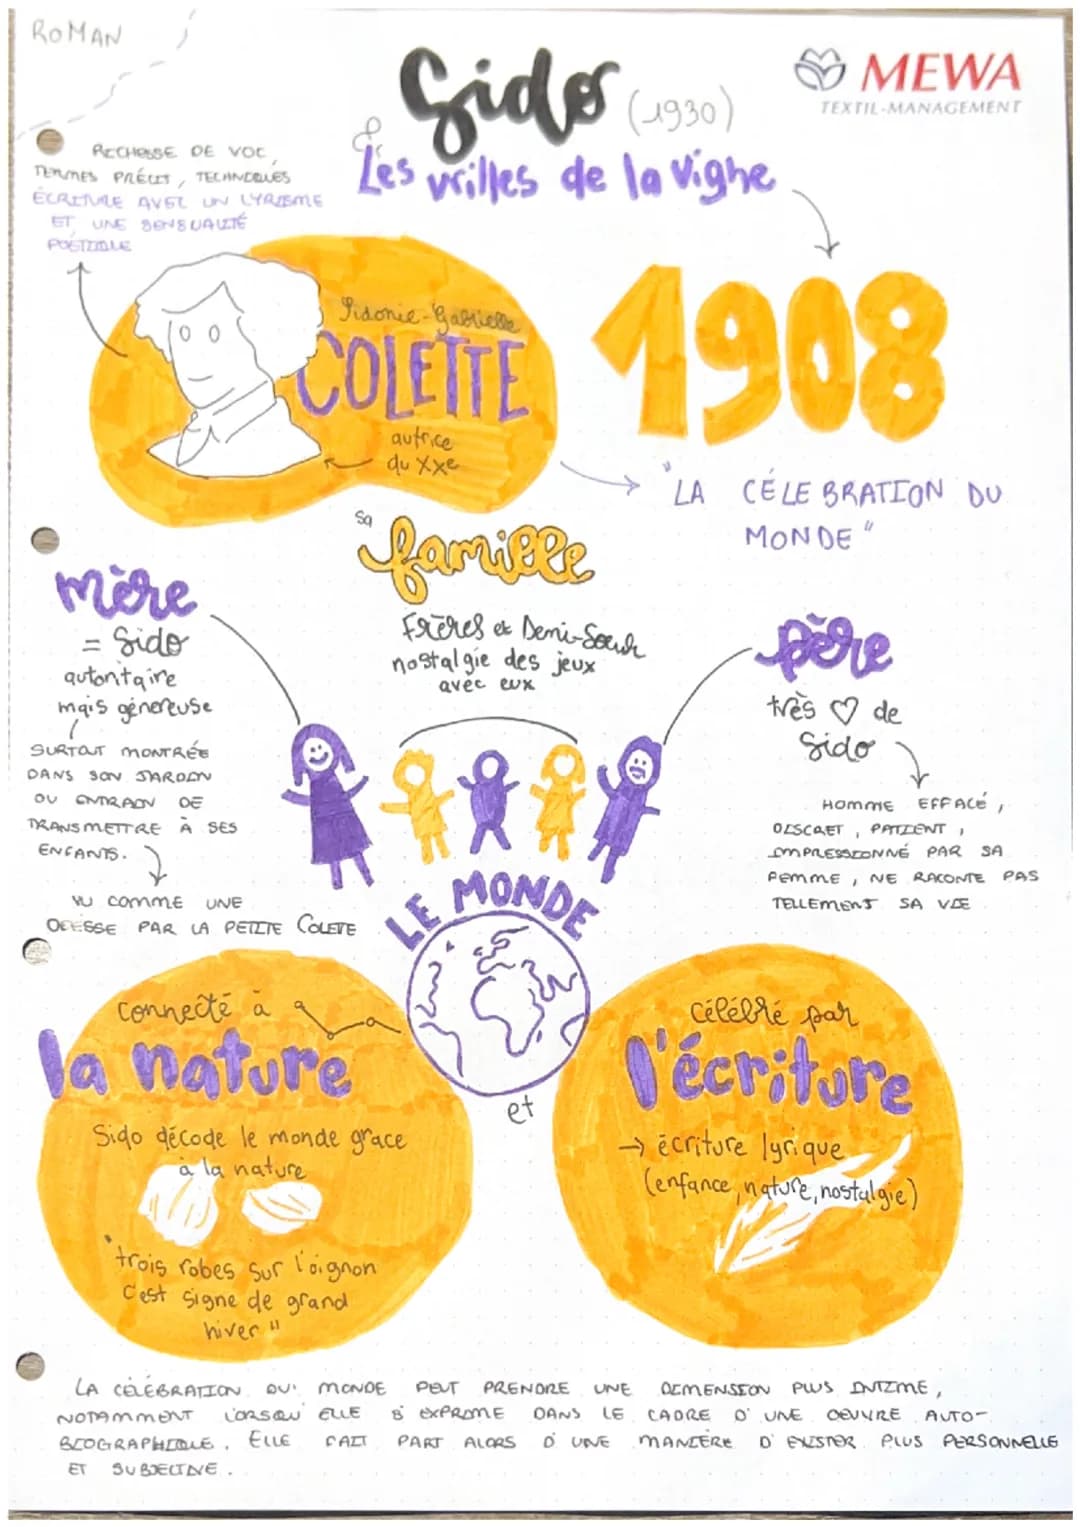 ROMAN
Sido (1930)
MEWA
TEXTIL-MANAGEMENT
&
Les vrilles de la vigne
RICHESSE DE VOC,
TERMES PRÉCIS, TECHNIQUES
ÉCRITURE AVEC UN LYRISME
ET UNE SENSUALITÉ
POÉTIQUE
1908
Sidonie-Gabrielle
COLETTE
autrice
du XXe
"LA CÉLEBRATION DU
MONDE"
sa
famille
Frères et Demi-Soeur
nostalgie des jeux
avec eux
mère
= Sido
autoritaire
mais généreuse
SURTOUT MONTRÉE
DANS SON JARDIN
OU ENTRAIN DE
TRANSMETTRE À SES
ENFANTS.
VU COMME UNE
DÉESSE PAR LA PETITE COLETE
père
très ♡ de
Sido
HOMME EFFACÉ,
DISCRET, PATIENT,
IMPRESSIONNÉ PAR SA
FEMME, NE RACONTE PAS
TELLEMENT SA VIE
LE MONDE
connecté à
la nature
Sido décode le monde grace
à la nature
"trois robes sur l'oignon
c'est signe de grand
hiver"
et
célébré par
l'écriture
→ écriture lyrique
(enfance, nature, nostalgie)
LA CÉLÉBRATION DU MONDE PEUT PRENDRE UNE DIMENSION PLUS INTIME,
NOTAMMENT LORSQU'ELLE S'EXPRIME DANS LE CADRE D'UNE OEUVRE AUTO-
BIOGRAPHIQUE. ELLE FAIT PART ALORS D'UNE MANIÈRE D'EXISTER PLUS PERSONNELLE
ET SUBJECTIVE.